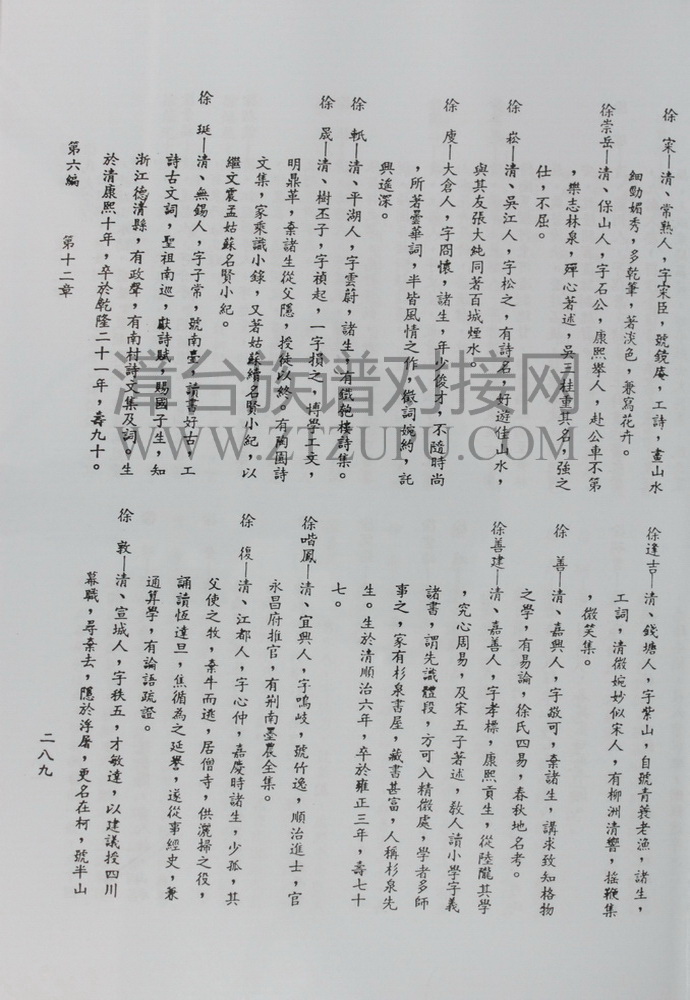 徐　寀—清、常熟人，字寀臣，號鏡庵，工詩，畫山水
細勁媚秀，多乾筆，著淡色，兼寫花卉。
徐崇岳—清、保山人，字石公，康熙舉人，赴公車不第
，樂志林泉，殫心著述，吳三桂重其名，強之
仕，不屈。
徐　崧—清、吳江人，字松之，有詩名，好遊佳山水，
與其友張大純同著百城煙水。
徐　庾—大倉人，字問懷，諸生，年少俊才，不隨時尚
，所著曇華詞，半皆風情之作，徵詞婉約，託
興遙深。
徐　軹—清、平湖人，字雲蔚，諸生，有鐵匏樓詩集。
徐　晟—清、樹丕子，字禎起，一字損之，博學工文，
明鼎革，棄諸生從父隱，授徒以終。有陶園詩
文集，家乘識小錄，又著姑蘇續名賢小紀，以
繼文震孟姑蘇名賢小紀。
徐　珽—清、無錫人，字子常，號南墨，讀書好古，工
詩古文詞，聖祖南巡，獻詩賦，賜國子生，知
浙江德清縣，有政聲，有南村詩文集及詞。生
於清康熙十年，卒於乾隆二十一年，壽九十。
第六編　第十二章
徐逢吉—清、錢塘人，字紫山，自號青蓑老漁，諸生，
工詞，清微婉妙似宋人，有柳洲清響，搖鞭集
，微笑集。
徐　善—清、嘉興人，字敬可，棄諸生，講求致知格物
之學，有易論，徐氏四易，春秋地名考。
徐善建—清、嘉善人，字孝標，康熙貢生，從陸隴其學
，究心周易，及宋五子著述，教人讀小學字義
諸書，謂先識體段，方可入精微處，學者多師
事之，家有杉泉書屋，藏書甚富，人稱杉泉先
生。生於清順治六年，卒於雍正三年，壽七十
七。
徐喈鳳—清、宜興人，字鳴岐，號竹逸，順治進士，官
永昌府推官，有荆南墨農全集。
徐　復—清、江都人，字心仲，嘉慶時諸生，少孤，其
父使之牧，棄牛而逃，居僧寺，供灑掃之役，
誦讀恆達旦，焦循為之延譽，遂從事經史，兼
通算學，有論語疏證。
徐　敦—清、宣城人，字秩五，才敏達，以建議授四川
幕職，尋棄去，隱於浮屠，更名在柯，號半山
二八九
漳台族谱对接网
WWW.ZTZUPU.COM